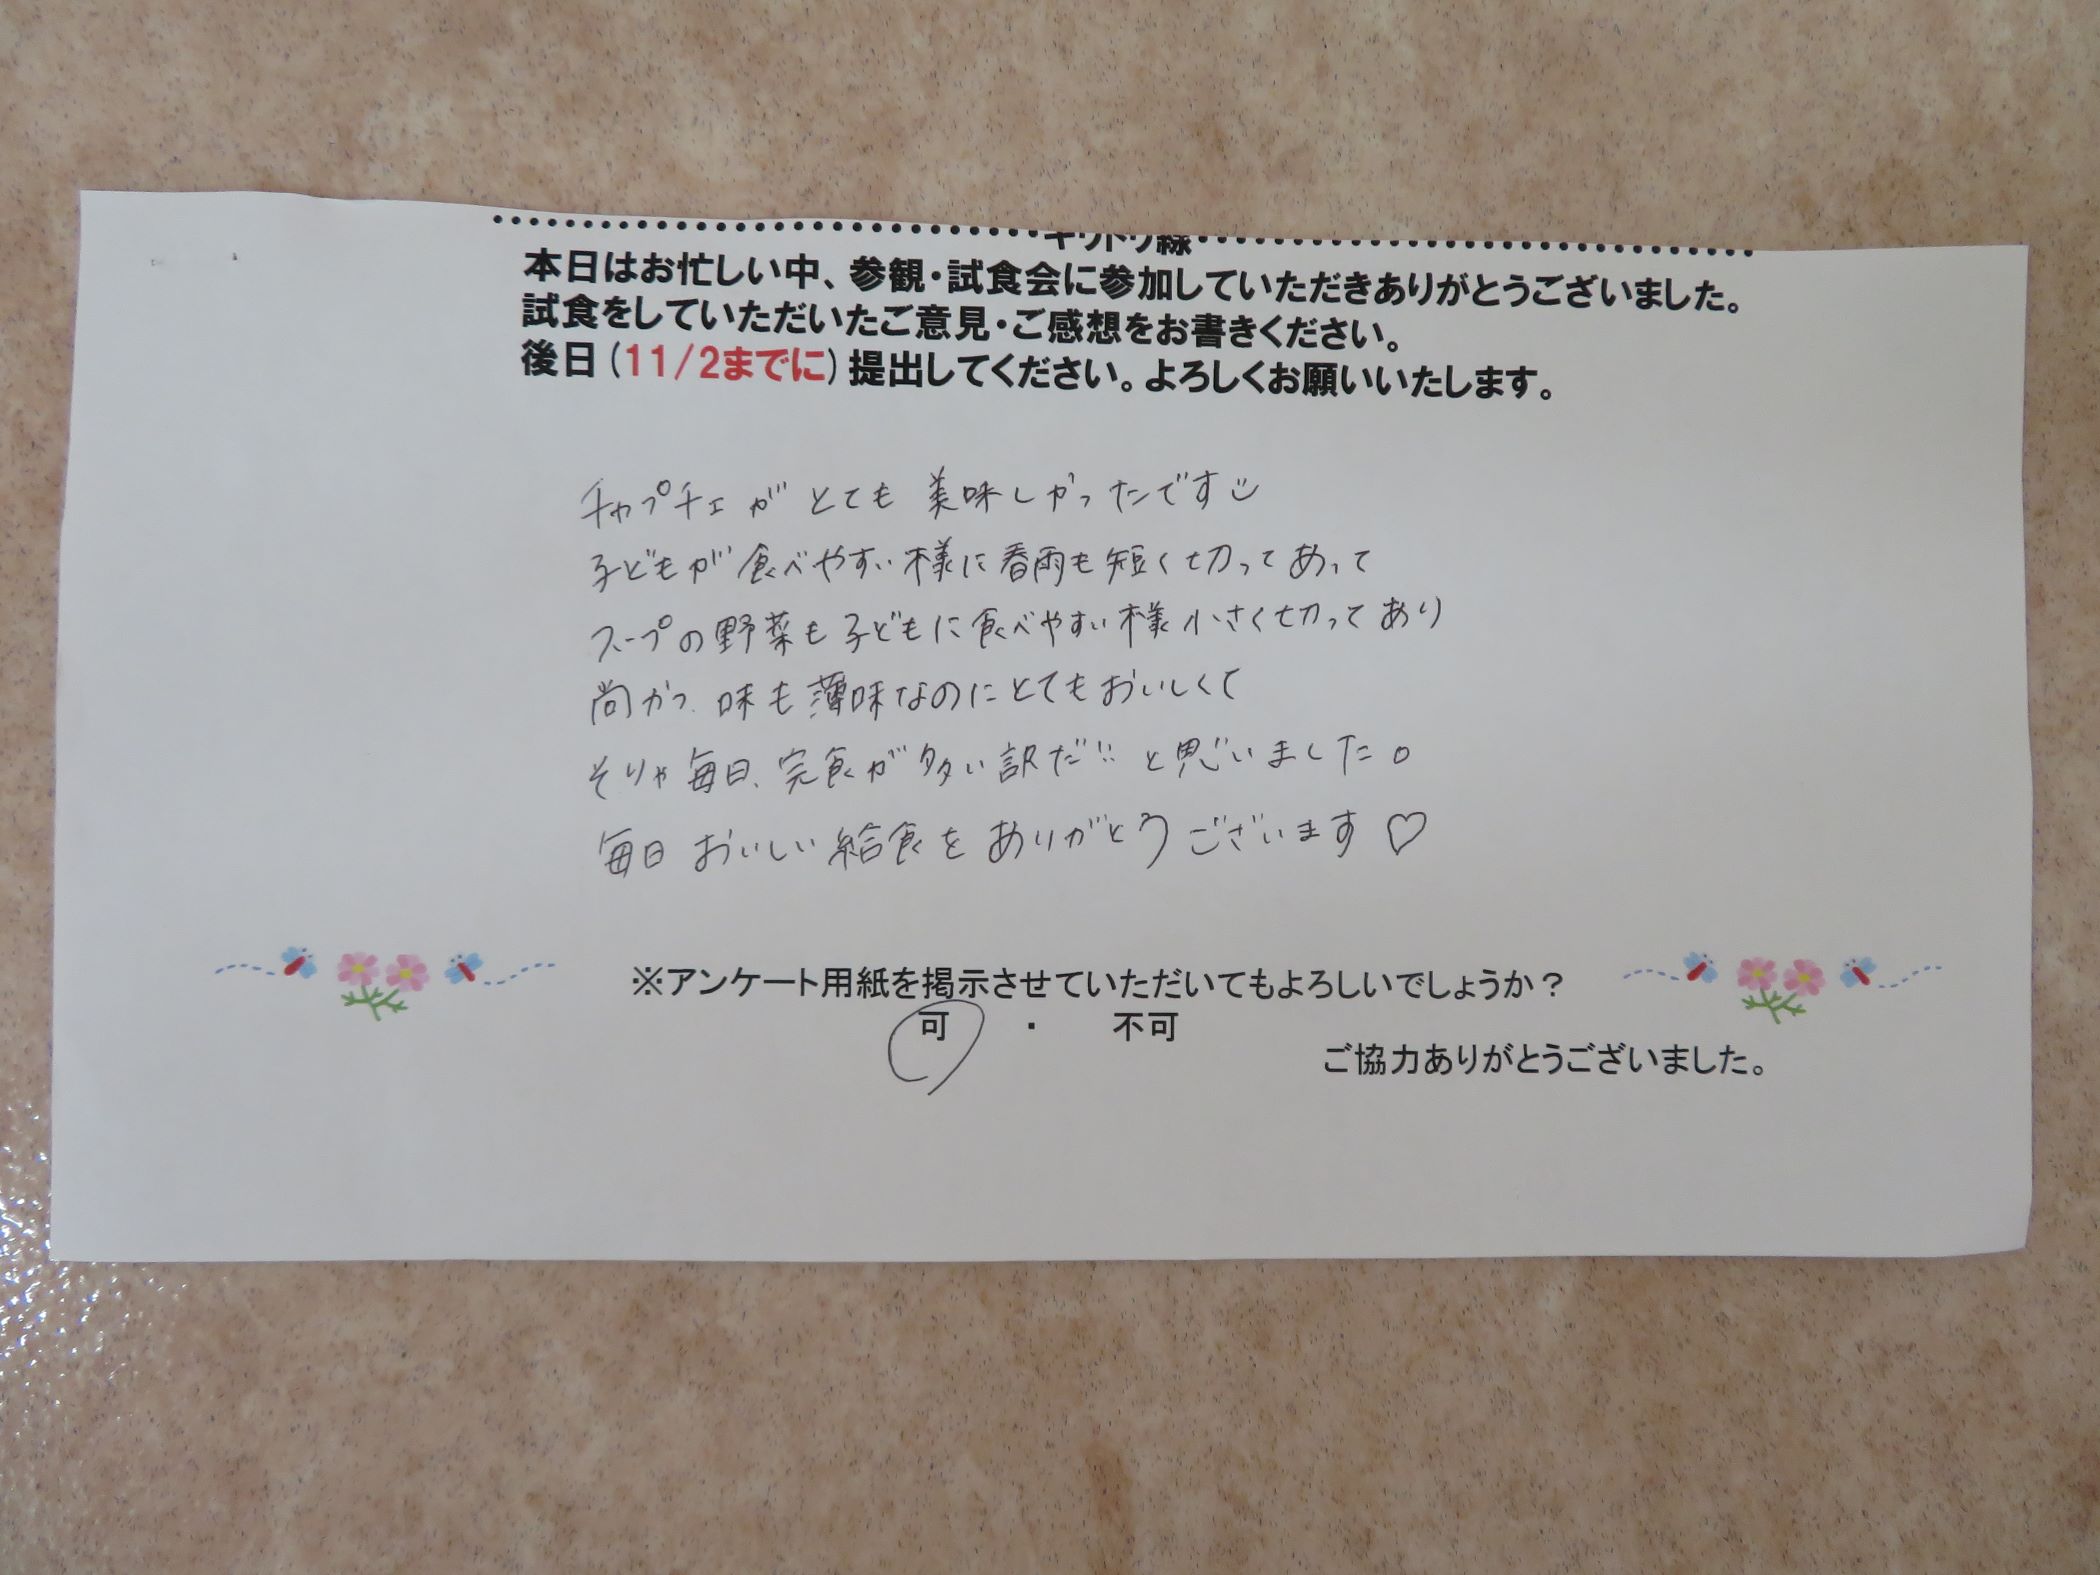 キリトリ線
本日はお忙しい中、参観・試食会に参加していただきありがとうございました。
試食をしていただいたご意見・ご感想をお書きください。
後日(11/2までに)提出してください。よろしくお願いいたします。
チャプチェが とても 美味しかったです
子どもが 食べやすい様に春雨も短く切ってあって
スープの野菜も子どもに食べやすい様小さく切ってあり
尚かつ、味も薄味なのにとてもおいしくて
そりゃ毎日、完食が多い訳だ!! と思いました。
毎日 おいしい給食を ありがとう ございます♡
※アンケート用紙を掲示させていただいてもよろしいでしょうか？
可 ・ 不可
ご協力ありがとうございました。